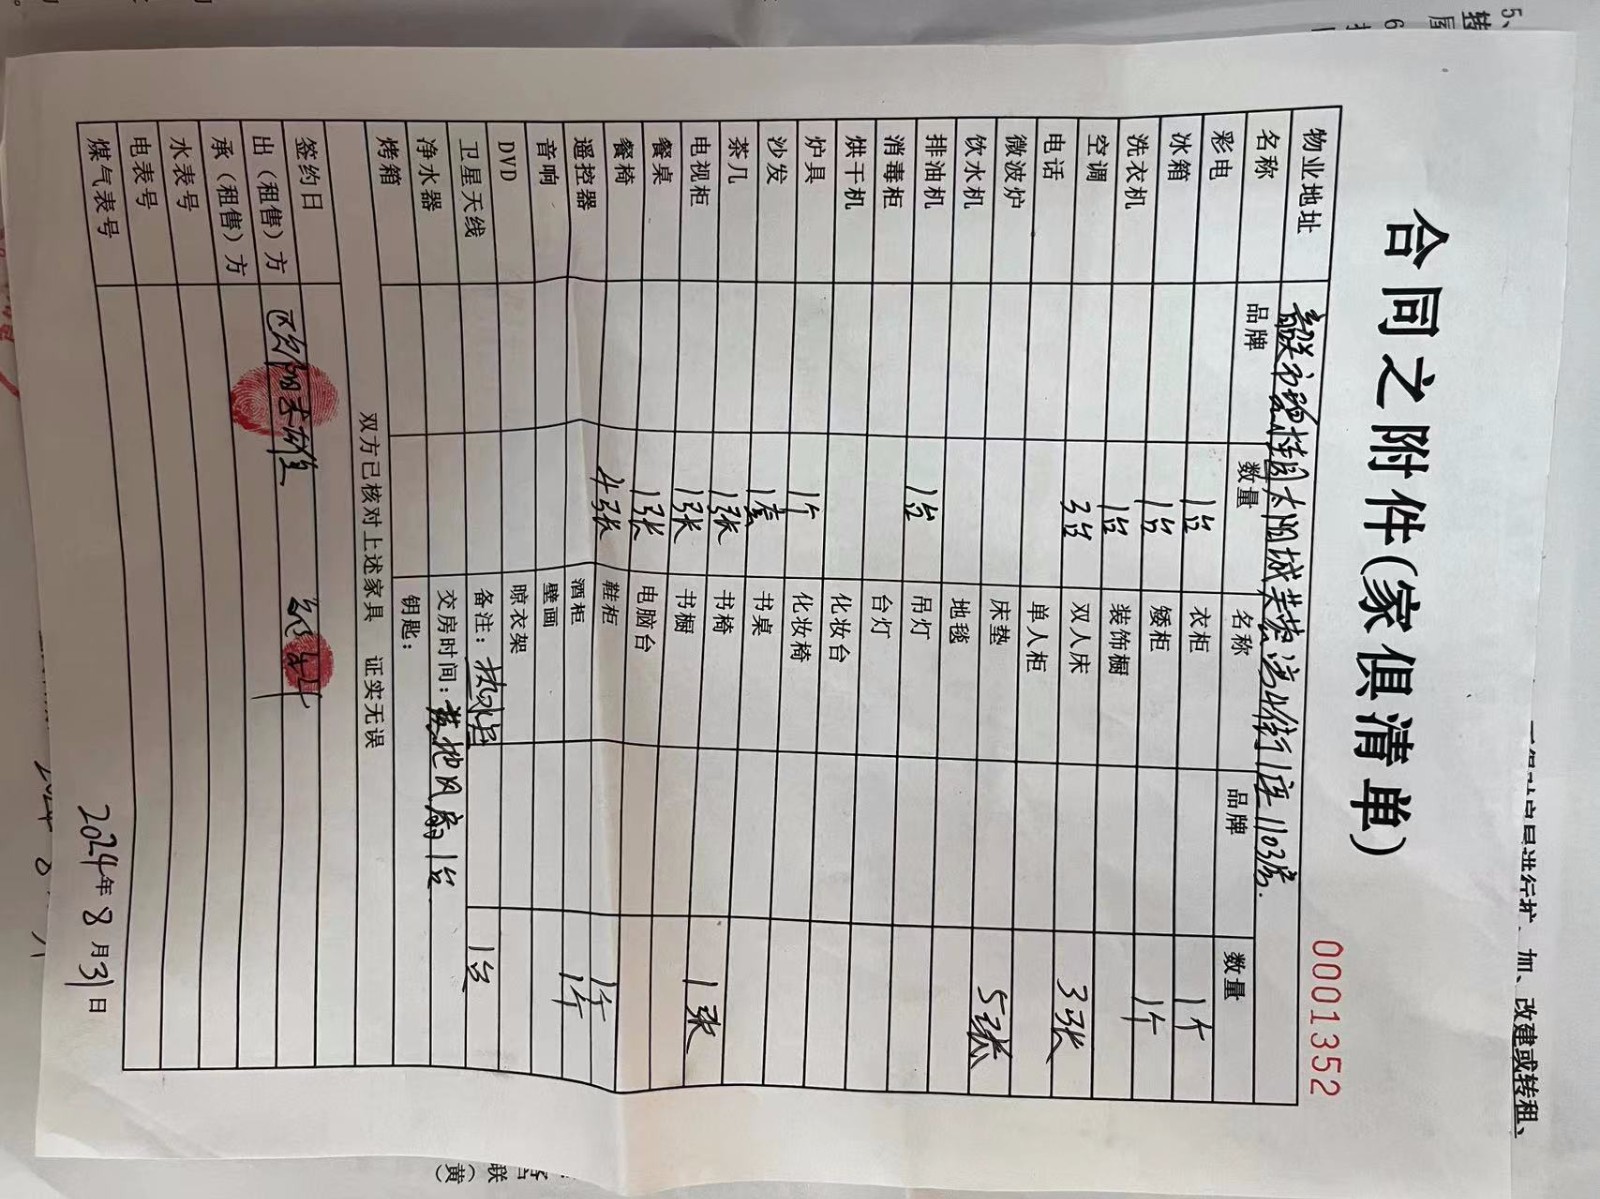 合同之附件(家俱清单)
0001352
物业地址 韶关市碧桂园太阳城芙蓉湾 街1座1103房.
名称 品牌 数量 名称 品牌 数量
彩电 1台 衣柜 1个
冰箱 1台 矮柜 1个
洗衣机 1台 装饰橱
空调 3台 双人床 3张
电话 单人柜
微波炉 床垫 5张
饮水机 地毯
排油机 1台 吊灯
消毒柜 台灯
烘干机 化妆台
炉具 1个 化妆椅
沙发 1套 书桌
茶几 1张 书椅 1张
电视柜 1张 书橱
餐桌 1张 电脑台
餐椅 4张 鞋柜 1个
遥控器 酒柜 1个
音响 壁画
DVD 晾衣架
卫星天线 备注：热水器 1台
净水器 交房时间：落地风扇1台
烤箱 钥匙：
双方已核对上述家具 证实无误
签约日
出（租售）方 欧阳
承（租售）方
水表号
电表号
煤气表号
2024年8月31日